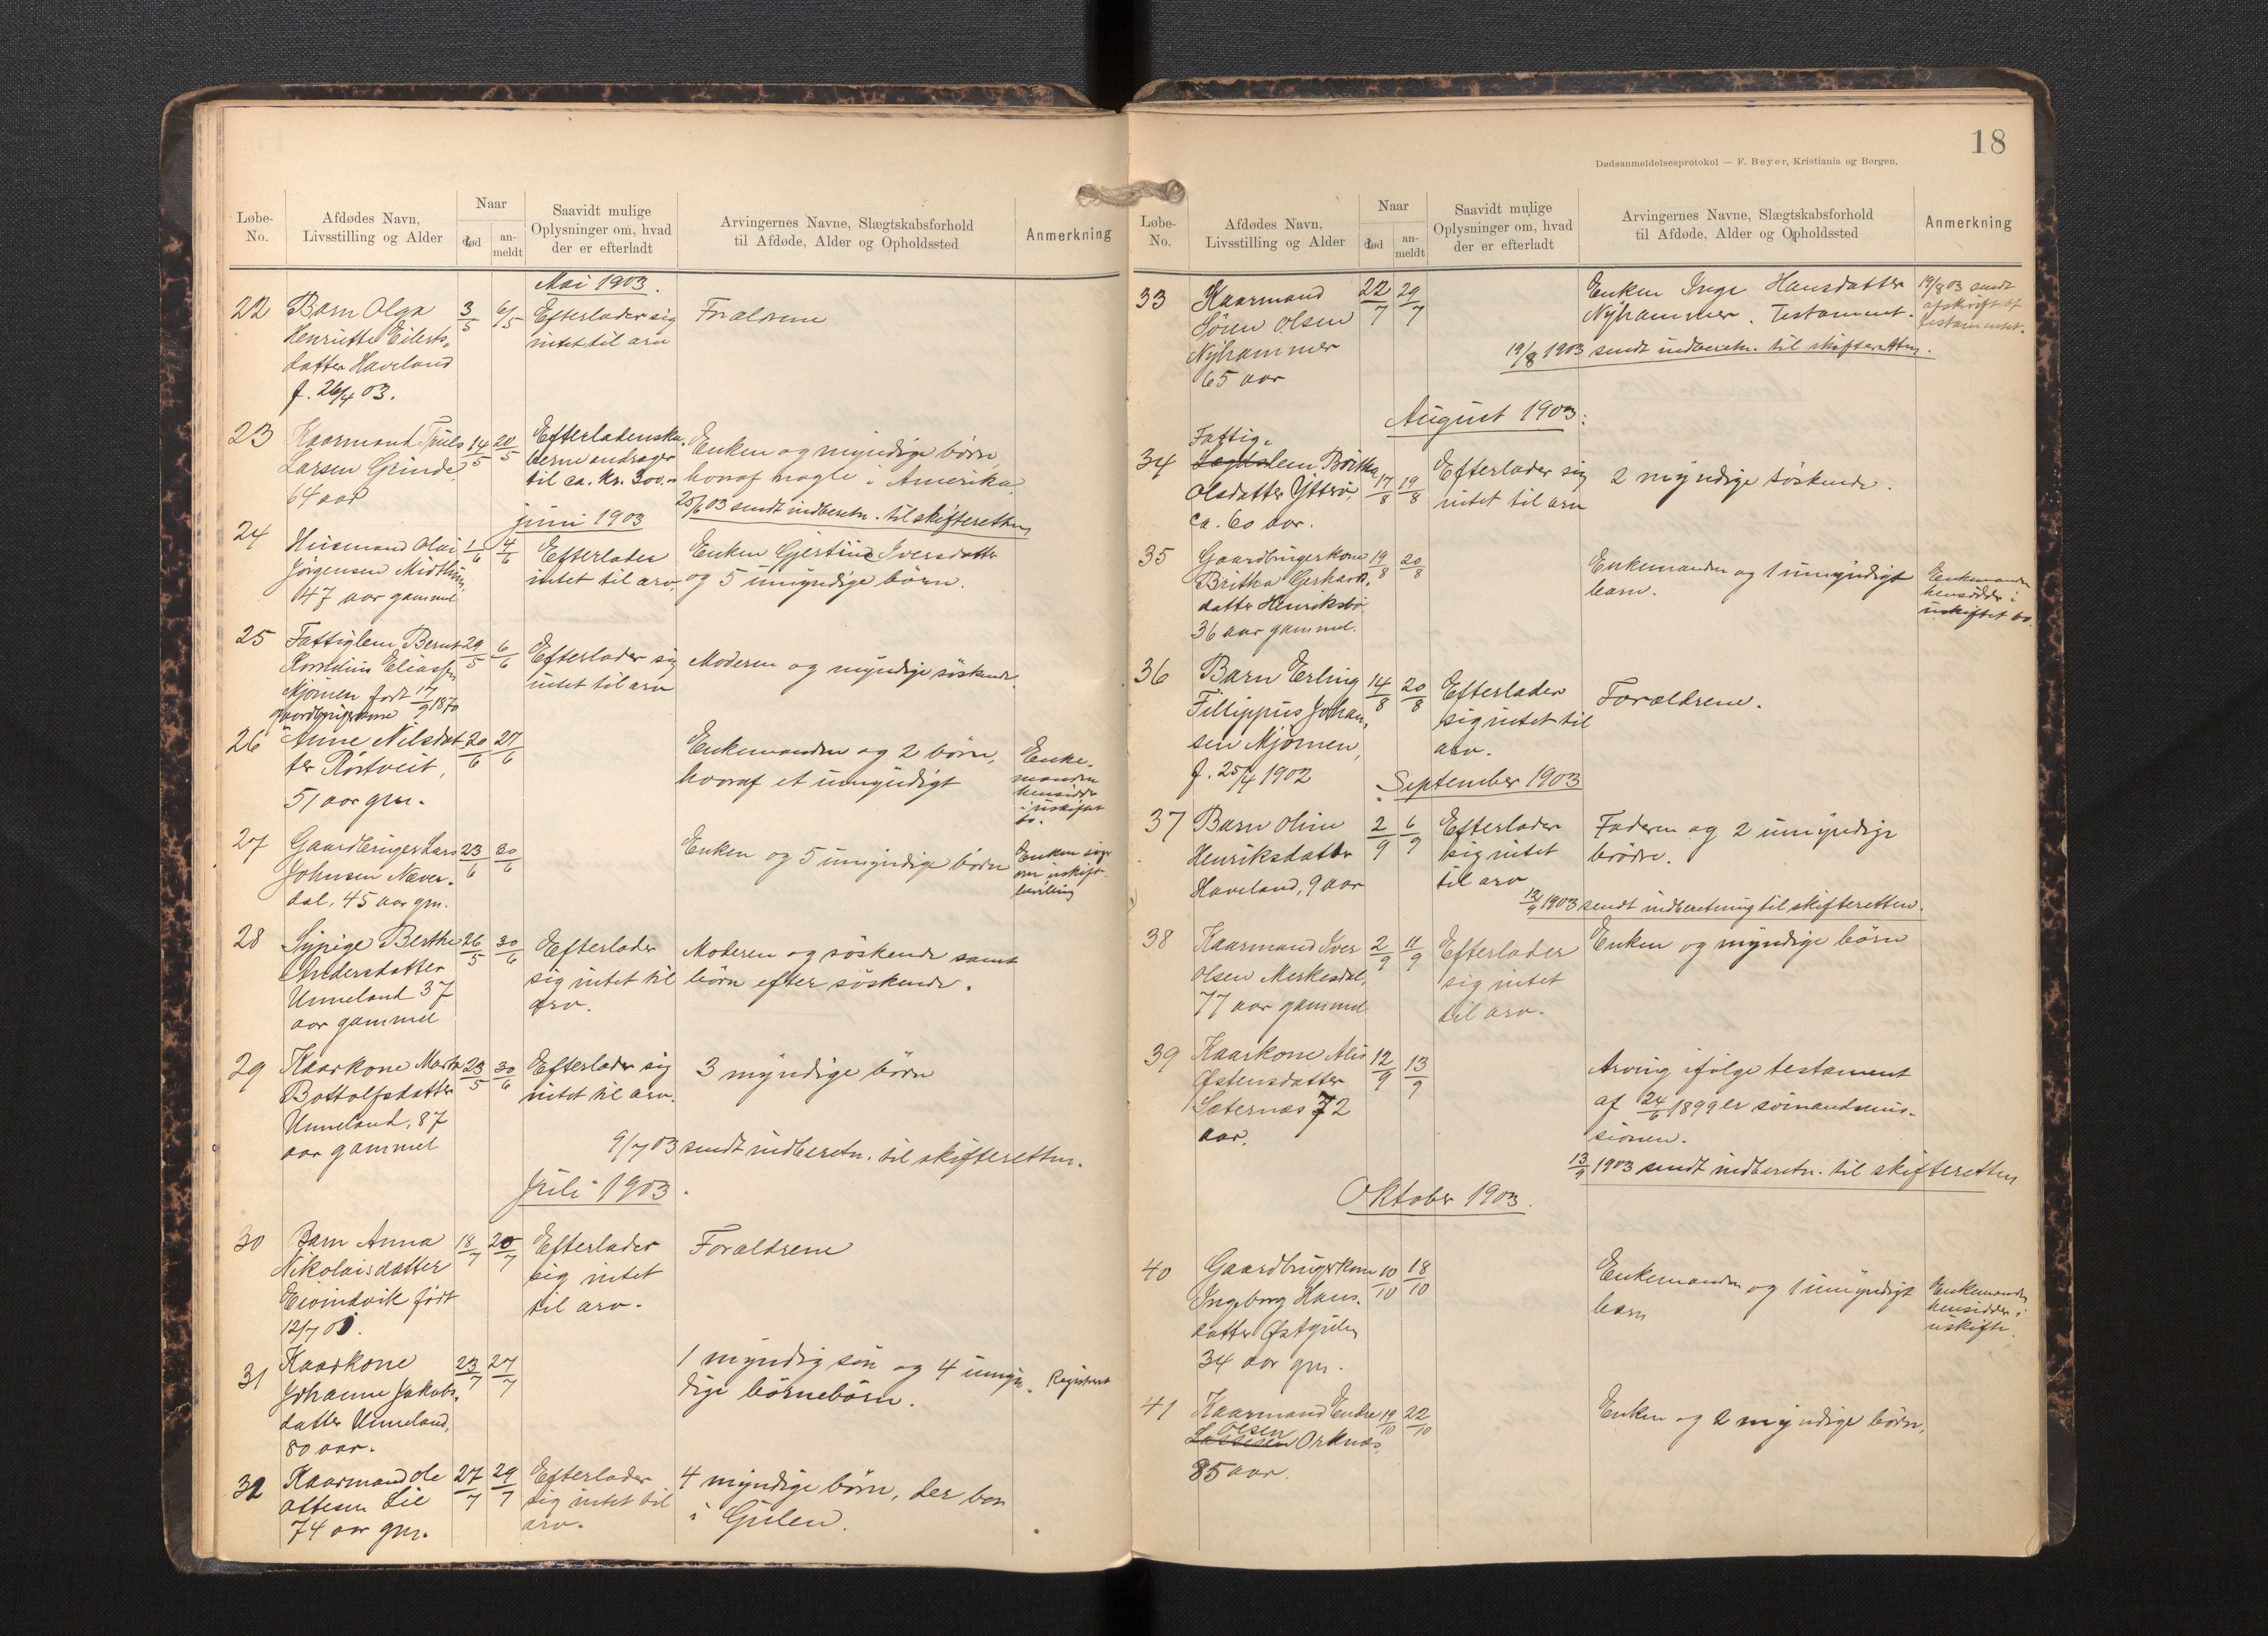 Løbe-
No.
Afdødes Navn,
Livsstilling og Alder
Naar
død
an-
meldt
Saavidt mulige
Oplysninger om, hvad
der er efterladt
Arvingernes Navne, Slægtskabsforhold
til Afdøde, Alder og Opholdssted
Anmerkning
Mai 1903.
22 Barn Olga 3/5 6/5 Efterlader sig Forældrene
Henriette Eilerts- intet til arv
datter Haveland
f. 26/4 03.
23 Kaarmand Truls 14/5 20/5 Efterladenska- Enken og myndige børn,
Larsen Grinde, berne andrager hvoraf nogle i Amerika.
64 aar til ca. kr. 300.-
25/6 03 sendt indberetn. til skifteretten
juni 1903
24 Husmand Olai 1/6 4/6 Efterlader Enken Gjertine Iversdatter
Jørgensen Midthun, intet til arv, og 5 umyndige børn.
47 aar gammel
25 Fattiglem Bernt 29/5 6/6 Efterlader sig Moderen og myndige søskende.
Eliassen intet til arv
Mjømen født 17/9 1870
gaardbrugerkone
26 Anne Nilsdat- 20/6 27/6 Enkemanden og 2 børn, Enke-
ter Røstveit, hvoraf et umyndigt manden
51 aar gm. hensidder
i uskiftet
bo.
27 Gaardbruger Lars 23/6 30/6 Enken og 5 umyndige børn Enken
Johnsen Næver- om uskift-
dal, 45 aar gm. bevilling
28 Sypige Berthe 26/5 30/6 Efterlader Moderen og søskende samt
Andersdatter sig intet til børn efter søskende.
Unneland 37 arv.
aar gammel
29 Kaarkone Marta 23/5 30/6 Efterlader sig 3 myndige børn
Bottolfsdatter intet til arv.
Unneland, 87
aar gammel
9/7 03 sendt indberetn. til skifteretten.
Juli 1903.
30 Barn Anna 18/7 20/7 Efterlader Forældrene
Nikolaisdatter sig intet
Eivindvik født til arv.
12/7 03.
31 Kaarkone 23/7 27/7 1 myndig søn og 4 umyn- Registrert
Johanne Jakobs- dige børnebørn.
datter Unneland,
80 aar.
32 Kaarmand Ole 27/7 29/7 Efterlader 4 myndige børn, der bor
Ottesen Lie sig intet til i Gulen.
74 aar gm. arv.
18
Dødsanmeldelsesprotokol — F. Beyer, Kristiania og Bergen.
Løbe-
No.
Afdødes Navn,
Livsstilling og Alder
Naar
død
an-
meldt
Saavidt mulige
Oplysninger om, hvad
der er efterladt
Arvingernes Navne, Slægtskabsforhold
til Afdøde, Alder og Opholdssted
Anmerkning
33 Kaarmand 22/7 29/7 Enken Inge Hansdatter 19/8 03 sendt
Søren Olsen Nyhammer. Testament. afskrift af
Nyhammer testamentet.
65 aar
19/8 1903 sendt indberetn. til skifteretten.
August 1903.
Fattig-
34 lem Britha 17/8 19/8 Efterlader sig 2 myndige søskende.
Olsdatter Ytterø, intet til arv
ca. 60 aar.
35 Gaardbrugerkone 19/8 20/8 Enkemanden og 1 umyndigt Enkemanden
Britha Gerhards- barn. hensidder i
datter Henriksbø, uskiftet bo.
36 aar gammel.
36 Barn Erling 14/8 20/8 Efterlader Forældrene.
Fillippus Johan- sig intet til
sen Mjømen, arv.
f. 25/4 1902
September 1903
37 Barn Oline 2/9 6/9 Efterlader Faderen og 2 umyndige
Henriksdatter sig intet brødre.
Haveland, 9 aar til arv
12/9 1903 sendt indberetning til skifteretten.
38 Kaarmand Iver 2/9 11/9 Efterlader Enken og myndige børn
Olsen Merkesdal, sig intet
77 aar gammel til arv.
39 Kaarkone Alis 12/9 13/9 Arving ifølge testament
Østensdatter af 24/6 1899 er sømandsmis-
Sæternæs 72 sionen.
aar.
13/9 1903 sendt indberetn. til skifteretten
Oktober 1903.
40 Gaardbrugerkone 10/10 18/10 Enkemanden og 1 umyndigt Enkemanden
Ingeborg Hans- barn hensidder i
datter Østgulen uskifte.
34 aar gm.
41 Kaarmand Endre 19/10 22/10 Enken og 2 myndige børn.
Olsen
Orknæs,
85 aar.